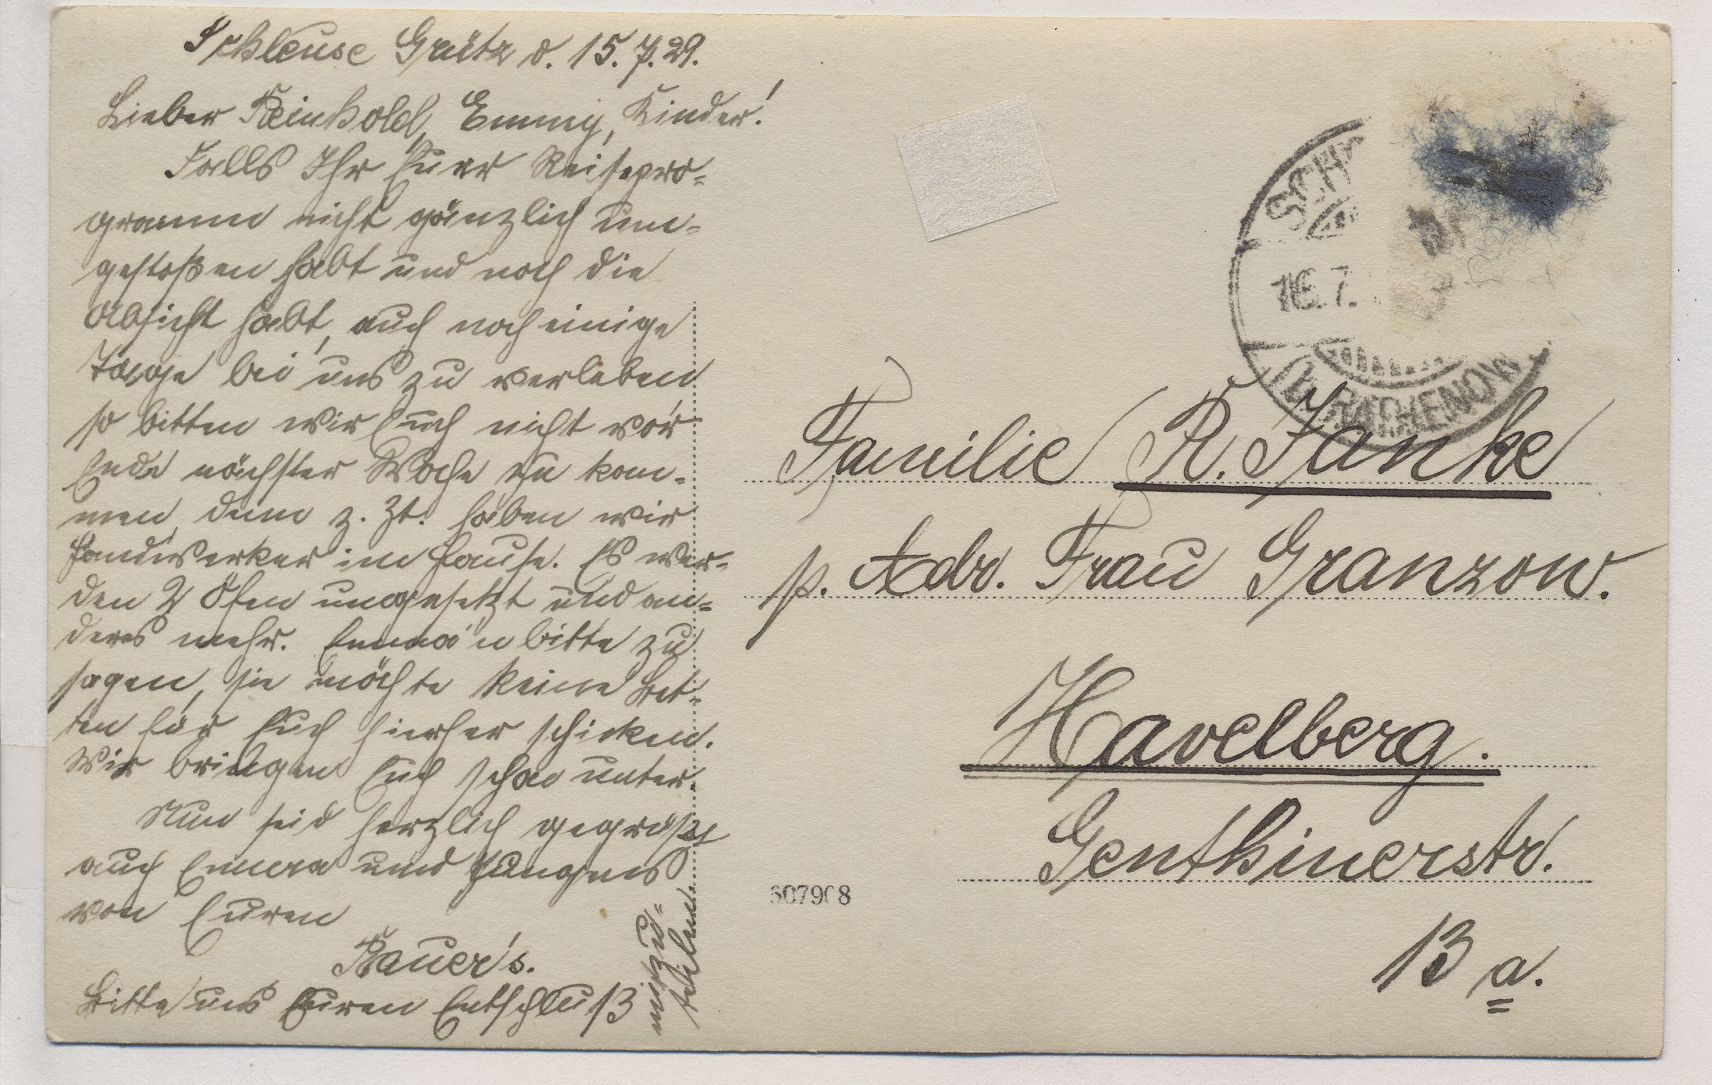 Schleuse Grütz d. 15.7.29.
Lieber Reinhold, Emmy, Kinder!
Falls Ihr Euer Reisepro-
gramm nicht gänzlich um-
gestoßen habt und noch die
Absicht habt, auch noch einige
Tage bei uns zu verleben
so bitten wir Euch nicht vor
Ende nächster Woche zu kom-
men, denn z. Zt. haben wir
Handwerker im Hause. Es wer-
den 2 Öfen umgesetzt und an-
deres mehr. Emma'n bitte zu
sagen, sie möchte keine Bet-
ten für Euch hierher schicken.
Wir bringen Euch schon unter.
Nun seid herzlich gegrüßt
auch Emma und Jungens
von Euren
Bauer's.
Bitte uns Euren Entschluß
mitzu-
teilen.
SCH
16.7.
RATHENOW
Familie R. Janke
p. Adr. Frau Granzow.
Havelberg.
Genthinerstr.
13 a.
607908